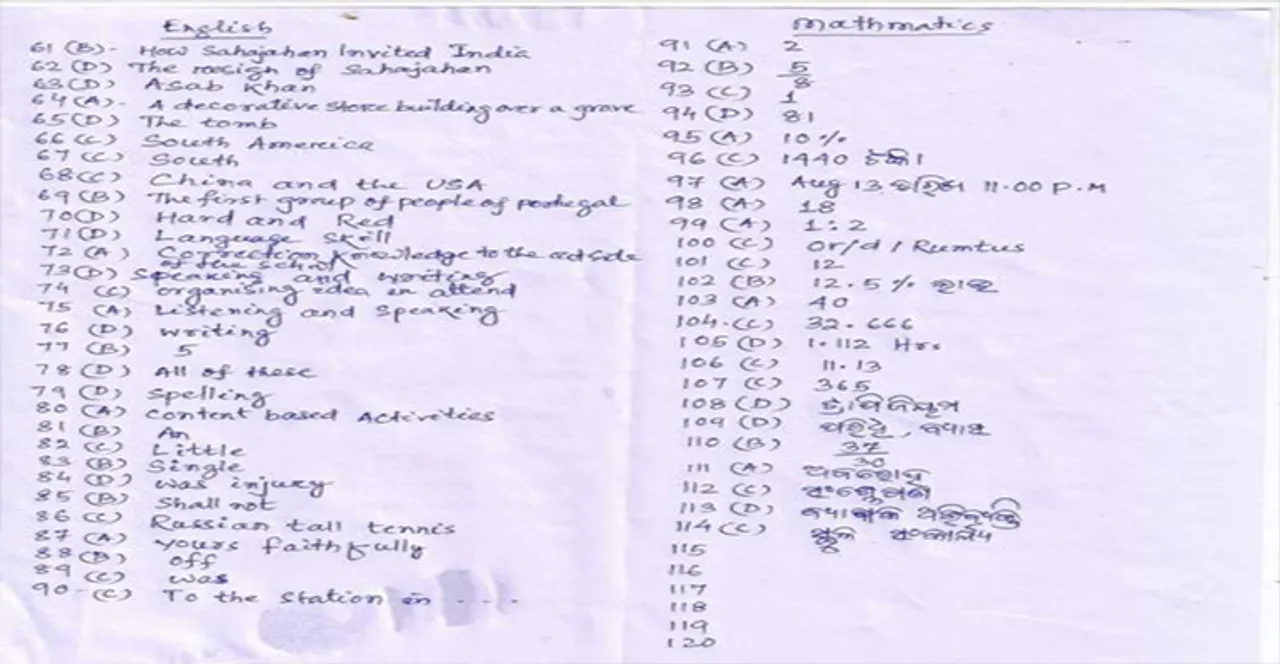 English
61 (B)- How Sahajahan Invited India
62 (D) The resign of Sahajahan
63 (D) Asab Khan
64 (A)- A decorative store building over a grave
65 (D) The tomb
66 (C) South America
67 (C) South
68 (C) China and the USA
69 (B) The first group of people of portegal
70 (D) Hard and Red
71 (D) Language Skill
72 (A) Correction knowledge to the
of the school
73 (D) Speaking and writing
74 (C) organising idea in attend
75 (A) Listening and Speaking
76 (D) writing
77 (B) 5
78 (D) All of these
79 (D) Spelling
80 (A) Content based Activities
81 (B) An
82 (C) Little
83 (B) Single
84 (D) was injury
85 (B) Shall not
86 (C) Russian tall tennis
87 (A) yours faithfully
88 (B) off
89 (C) was
90-(C) To the Station in .....
Mathmatics
91 (A) 2
92 (B) 5/8
93 (C) 1
94 (D) 81
95 (A) 10%
96 (C) 1440
97 (A) Aug 13 11.00 P.M
98 (A) 18
99 (A) 1:2
100 (C) or/d / Rumtus
101 (C) 12
102 (B) 12.5%
103 (A) 40
104-(C) 32.666
105 (D) 1.112 Hr.
106 (C) 11.13
107 (C) 365
108 (D)
109 (D) ପରିଧି,
110 (B) 37/30
111 (A)
112 (C)
113 (D)
114 (C)
115
116
117
118
119
120